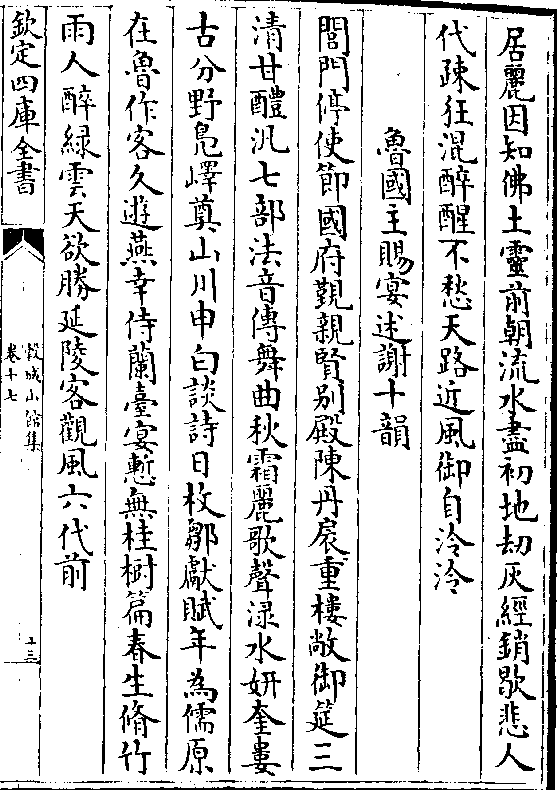 居麗因知佛土靈前朝流水盡初地刼灰經銷歇悲人
代疎狂混醉醒不愁天路近風御自泠泠
魯國主賜宴述謝十韻
閶門停使節國府覲親賢别殿陳丹扆重樓敞御筵三
清甘醴汎七部法音傳舞曲秋霜麗歌聲渌水妍奎婁
古分野鳬嶧奠山川申白談詩日枚鄒獻賦年為儒原
在魯作客久遊燕幸侍蘭臺宴慙無桂樹篇春生脩竹
雨人醉緑雲天欲勝延陵客觀風六代前
欽定四庫全書
榖城山館集
卷十七
十三